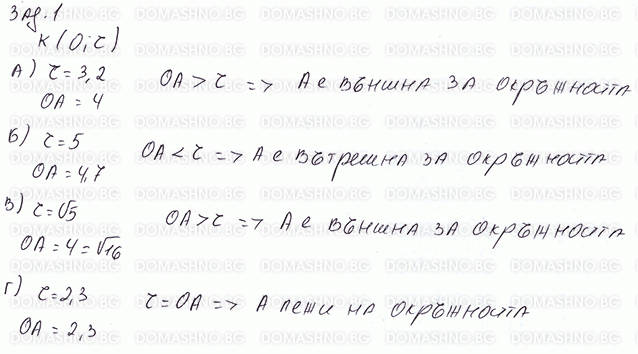 Зад. 1
K(O; r)
А) r = 3,2
OA = 4
OA > r => A е външна за окръжността
Б) r = 5
OA = 4,7
OA < r => A е вътрешна за окръжността
В) r = √5
OA = 4 = √16
OA > r => A е външна за окръжността
Г) r = 2,3
OA = 2,3
r = OA => A лежи на окръжността